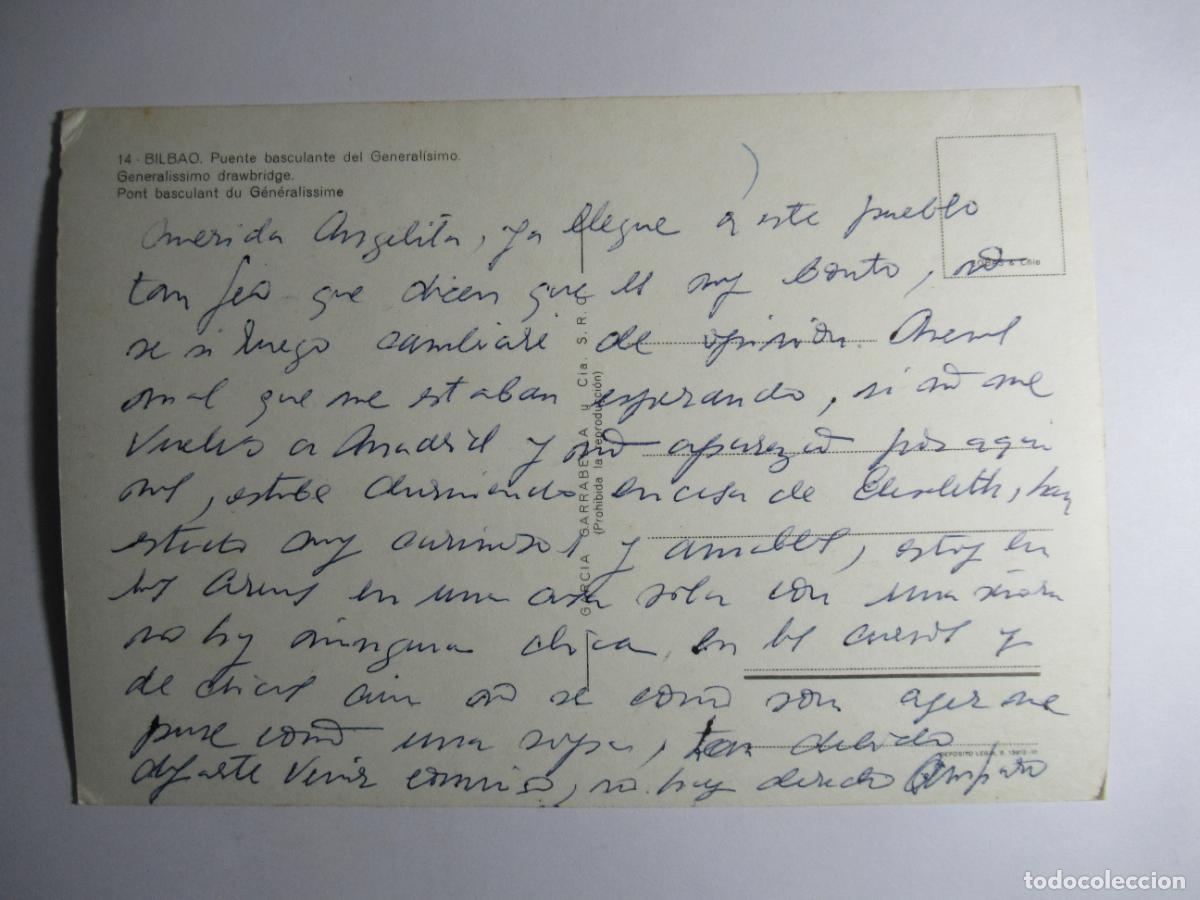 14 - BILBAO. Puente basculante del Generalísimo.
Generalissimo drawbridge.
Pont basculant du Généralissime
Querida Angelita, ya llegue a este pueblo
tan feo que dicen que es muy bonito, no
se si luego cambiaré de opinión. Menos
mal que me estaban esperando, si no me
vuelvo a Madrid y no aparezco por aqui
mas, estube durmiendo en casa de Elisabeth, han
estado muy cariñosos y amables, estoy en
las Arenas en una casa sola con una señora
no hay ninguna chica en los cursos y
de chicos aun no se como son ayer me
puse como una sopa, tan debido
dejarte venir conmigo, no hay derecho Amparo
GARCIA GARRABELLA y Cia. S. R. C.
(Prohibida la reproducción)
DEPOSITO LEGAL B.
todocoleccion